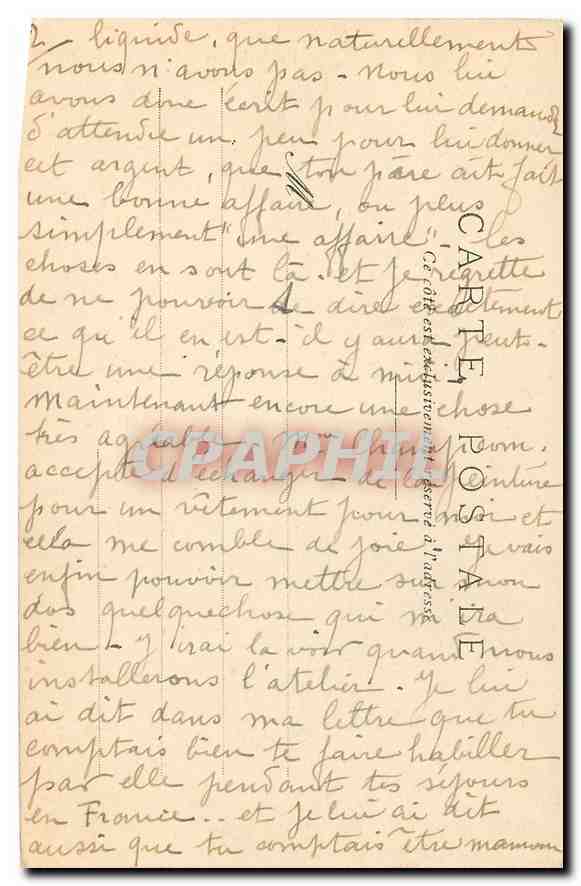 2/ liquide, que naturellement
nous n'avons pas - Nous lui
avons donc écrit pour lui demander
d'attendre un peu pour lui donner
cet argent, que ton père ait fait
une bonne affaire, ou plus
simplement "une affaire", les
choses en sont là - et je regrette
de ne pouvoir te dire exactement
ce qu'il en est - il y aura peut-
être une réponse à midi,
Maintenant encore une chose
très agréable. Mme
accepte d'échanger de la peinture
pour un vêtement pour moi et
cela me comble de joie. Je vais
enfin pouvoir mettre sur mon
dos quelquechose qui m'ira
bien - J'irai la voir quand nous
installerons l'atelier. Je lui
ai dit dans ma lettre que tu
comptais bien te faire habiller
par elle pendant tes séjours
en France.. et je lui ai dit
aussi que tu comptais être maman
M
CARTE POSTALE
Ce côté est exclusivement réservé à l'adresse
CPAPHIL